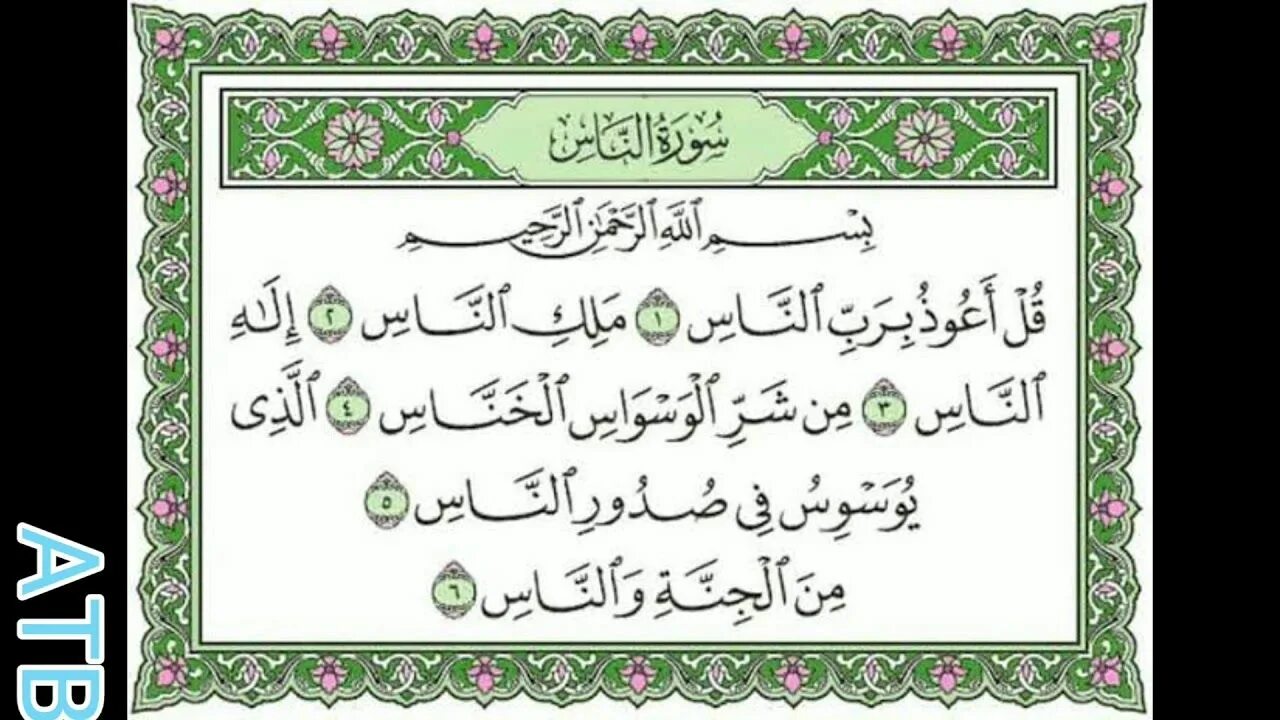 سُورَةُ النَّاسِ
بِسْمِ ٱللَّهِ ٱلرَّحْمَٰنِ ٱلرَّحِيمِ
قُلْ أَعُوذُ بِرَبِّ ٱلنَّاسِ ١ مَلِكِ ٱلنَّاسِ ٢ إِلَٰهِ
ٱلنَّاسِ ٣ مِن شَرِّ ٱلْوَسْوَاسِ ٱلْخَنَّاسِ ٤ ٱلَّذِى
يُوَسْوِسُ فِى صُدُورِ ٱلنَّاسِ ٥
مِنَ ٱلْجِنَّةِ وَٱلنَّاسِ ٦
ATB